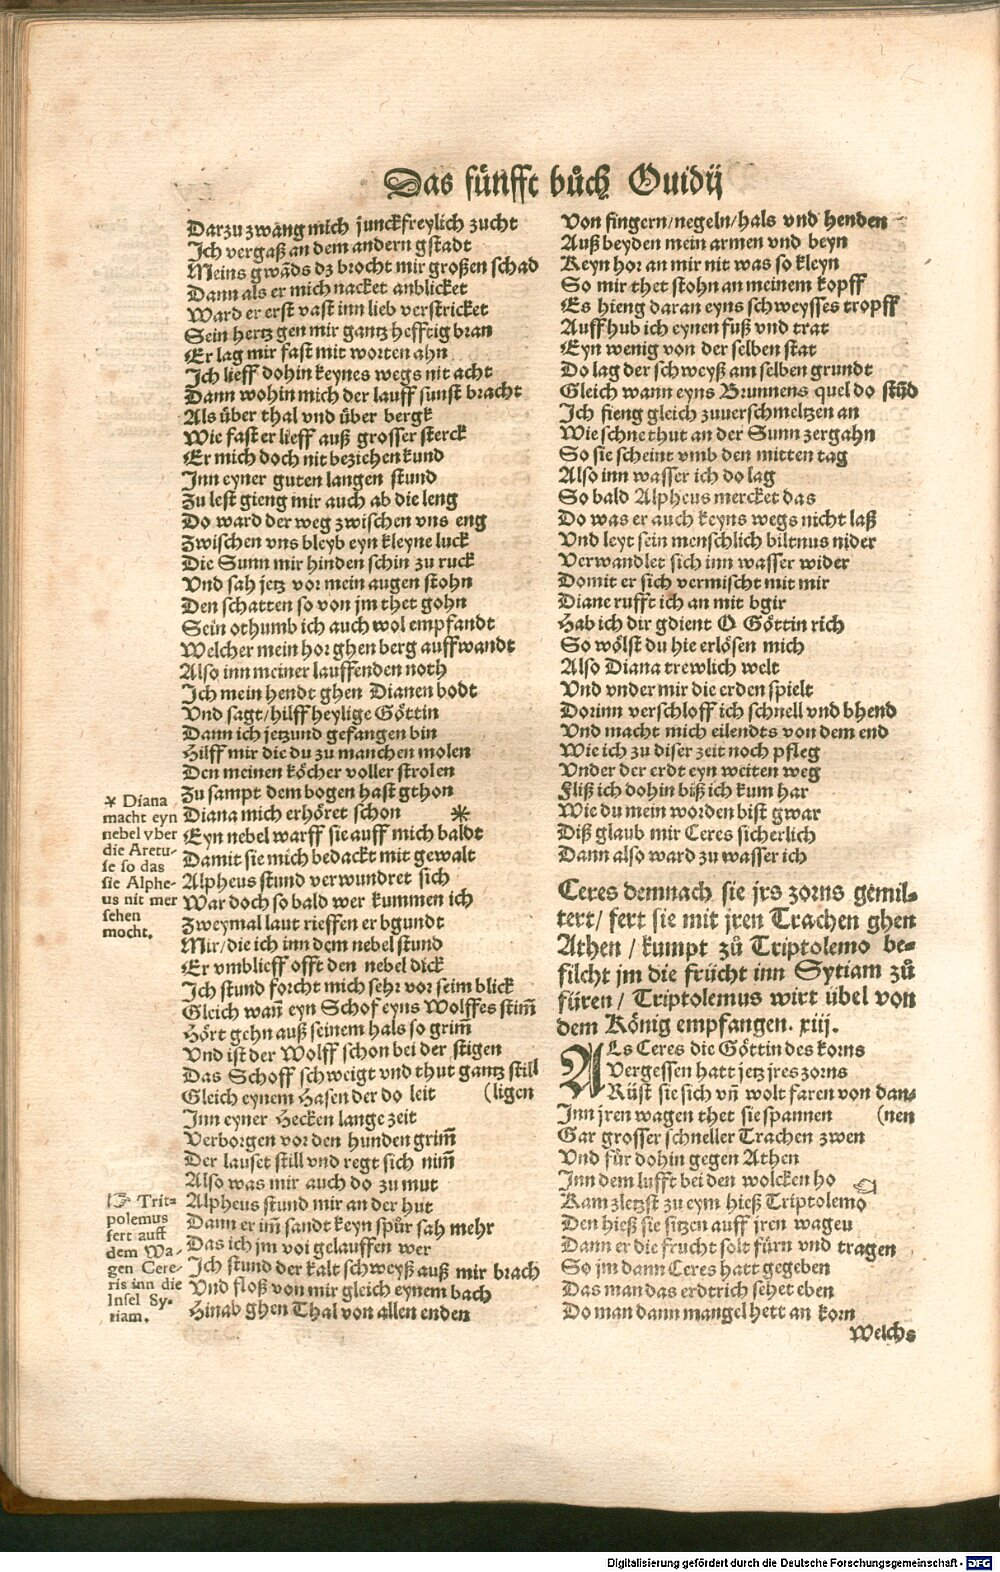 Das fünfft bůch Ouidij
Darzu zwang mich junckfreylich zucht
Ich vergaß an dem andern gstadt
Meins gwāds dz brocht mir großen schad
Dann als er mich nacket anblicket
Ward er erst vast inn lieb verstricket
Sein hertz gen mir gantz hefftig bran
Er lag mir fast mit worten ahn
Ich lieff dohin keynes wegs nit acht
Dann wohin mich der lauff sunst bracht
Als über thal vnd über bergk
Wie fast er lieff auß grosser sterck
Er mich doch nit beziehen kund
Inn eyner guten langen stund
Zu lest gieng mir auch ab die leng
Do ward der weg zwischen vns eng
Zwischen vns bleyb eyn kleyne luck
Die Sunn mir hinden schin zu ruck
Vnd sah jetz vor mein augen stohn
Den schatten so von jm thet gohn
Sein othumb ich auch wol empfandt
Welcher mein hor ghen berg auffwandt
Also inn meiner lauffenden noth
Ich mein hendt ghen Dianen bodt
Vnd sagt / hilff heylige Göttin
Dann ich jetzund gefangen bin
Hilff mir die du zu manchen molen
Den meinen köcher voller strolen
Zu sampt dem bogen hast gthon
Diana mich erhöret schon *
Eyn nebel warff sie auff mich baldt
Damit sie mich bedackt mit gewalt
Alpheus stund verwundret sich
War doch so bald wer kummen ich
Zweymal laut rieffen er bgundt
Mir / die ich inn dem nebel stund
Er vmblieff offt den nebel dick
Ich stund forcht mich sehr vor seim blick
Gleich wañ eyn Schof eyns Wolffes stim̄
Hört gehn auß seinem hals so grim̄
Vnd ist der Wolff schon bei der stigen
Das Schoff schweigt vnd thut gantz still
Gleich eynem Hasen der do leit (ligen
Inn eyner Hecken lange zeit
Verborgen vor den hunden grim̄
Der lauset still vnd regt sich nim̄
Also was mir auch do zu mut
Alpheus stund mir an der hut
Dann er im̄ sandt keyn spůr sah mehr
Das ich jm voi gelauffen wer
Ich stund der kalt schweyß auß mir brach
Vnd floß von mir gleich eynem bach
Hinab ghen Thal von allen enden
* Diana
macht eyn
nebel vber
die Aretu-
se so das
sie Alphe-
us nit mer
sehen
mocht.
☞ Trit=
polemus
fert auff
dem Wa-
gen Cere-
ris inn die
Insel Sy-
riam.
Von fingern / negeln / hals vnd henden
Auß beyden mein armen vnd beyn
Keyn hor an mir nit was so kleyn
So mir thet stohn an meinem kopff
Es hieng daran eyns schweysses tropff
Auff hub ich eynen fuß vnd trat
Eyn wenig von der selben stat
Do lag der schweyß am selben grundt
Gleich wann eyns Brunnens quel do stůd
Ich fieng gleich zuuerschmeltzen an
Wie schne thut an der Sunn zergahn
So sie scheint vmb den mitten tag
Also inn wasser ich do lag
So bald Alpheus mercket das
Do was er auch keyns wegs nicht laß
Vnd leyt sein menschlich biltnus nider
Verwandlet sich inn wasser wider
Domit er sich vermischt mit mir
Diane rufft ich an mit bgir
Hab ich dir gdient O Göttin rich
So wölst du hie erlösen mich
Also Diana trewlich welt
Vnd vnder mir die erden spielt
Dorinn verschloff ich schnell vnd bhend
Vnd macht mich eilendts von dem end
Wie ich zu diser zeit noch pfleg
Vnder der erdt eyn weiten weg
Fliß ich dohin biß ich kum har
Wie du mein worden bist gwar
Diß glaub mir Ceres sicherlich
Dann also ward zu wasser ich
Ceres demnach sie jrs zorns gemil=
tert / fert sie mit jren Trachen ghen
Athen / kumpt zů Triptolemo be=
filcht jm die frücht inn Sytiam zů
füren / Triptolemus wirt übel von
dem König empfangen. xiij.
ALs Ceres die Göttin des korns
Vergessen hatt jetz jres zorns
Rüst sie sich vñ wolt faren von dan=
Inn jren wagen thet sie spannen (nen
Gar grosser schneller Trachen zwen
Vnd fůr dohin gegen Athen
Inn dem lufft bei den wolcken ho
Kam zletzst zu eym hieß Triptolemo
Den hieß sie sitzen auff jren wageu
Dann er die frucht solt fürn vnd tragen
So jm dann Ceres hatt gegeben
Das man das erdtrich sehet eben
Do man dann mangel hett an korn
Welchs
Digitalisierung gefördert durch die Deutsche Forschungsgemeinschaft - DFG